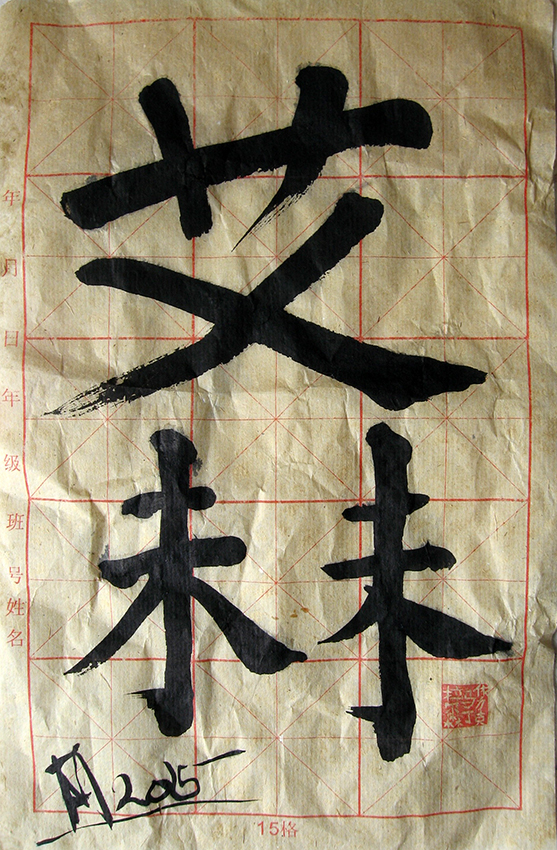 艾
未未
年 月 日 年 级 班 号 姓名
15格